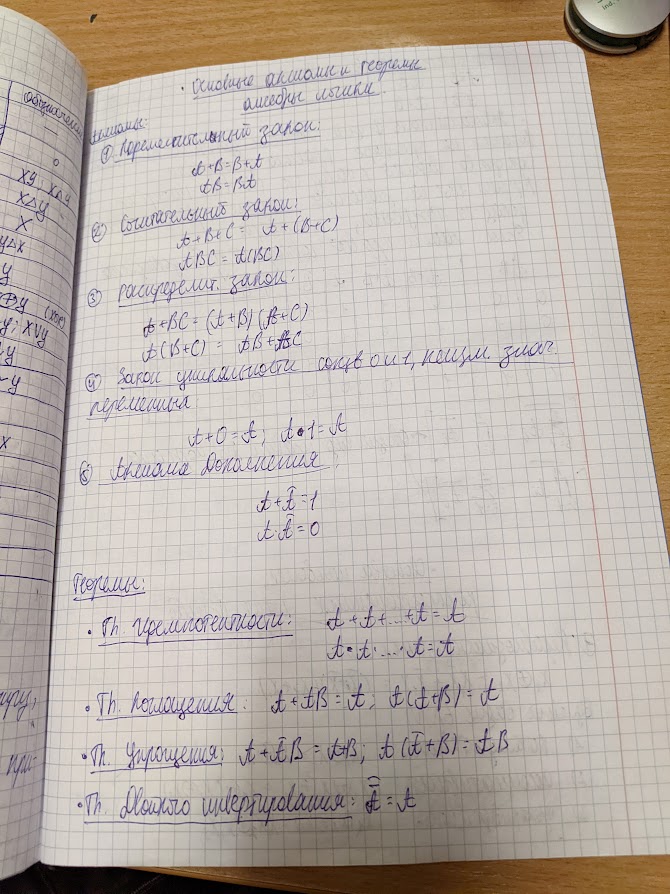 Общезначим
—
0
xy; x∧y
x△y
x
y△x
y
x⊕y (xor)
y; x∨y
x
• Основные аксиомы и теоремы
алгебры логики
Аксиомы:
① Переместительный закон:
A+B=B+A
AB=BA
② Сочетательный закон:
A+B+C= A+(B+C)
ABC = A(BC)
③ Распределит. закон:
A+BC=(A+B)(A+C)
A(B+C) = AB+AC
④ Закон уникальности сущ 0 и 1, неизм. знач.
переменных
A+0=A; A•1=A
⑤ Аксиома Дополнения:
A+A̅=1
A·A̅=0
Теоремы:
• Th. Идемпотентности: A+A+...+A=A
A•A·...·A=A
• Th. Поглащения: A+AB=A; A(A+B)=A
• Th. Упрощения: A+A̅B=A+B; A(A̅+B)=AB
• Th. Двойного инвертирования: A̿ = A
при-